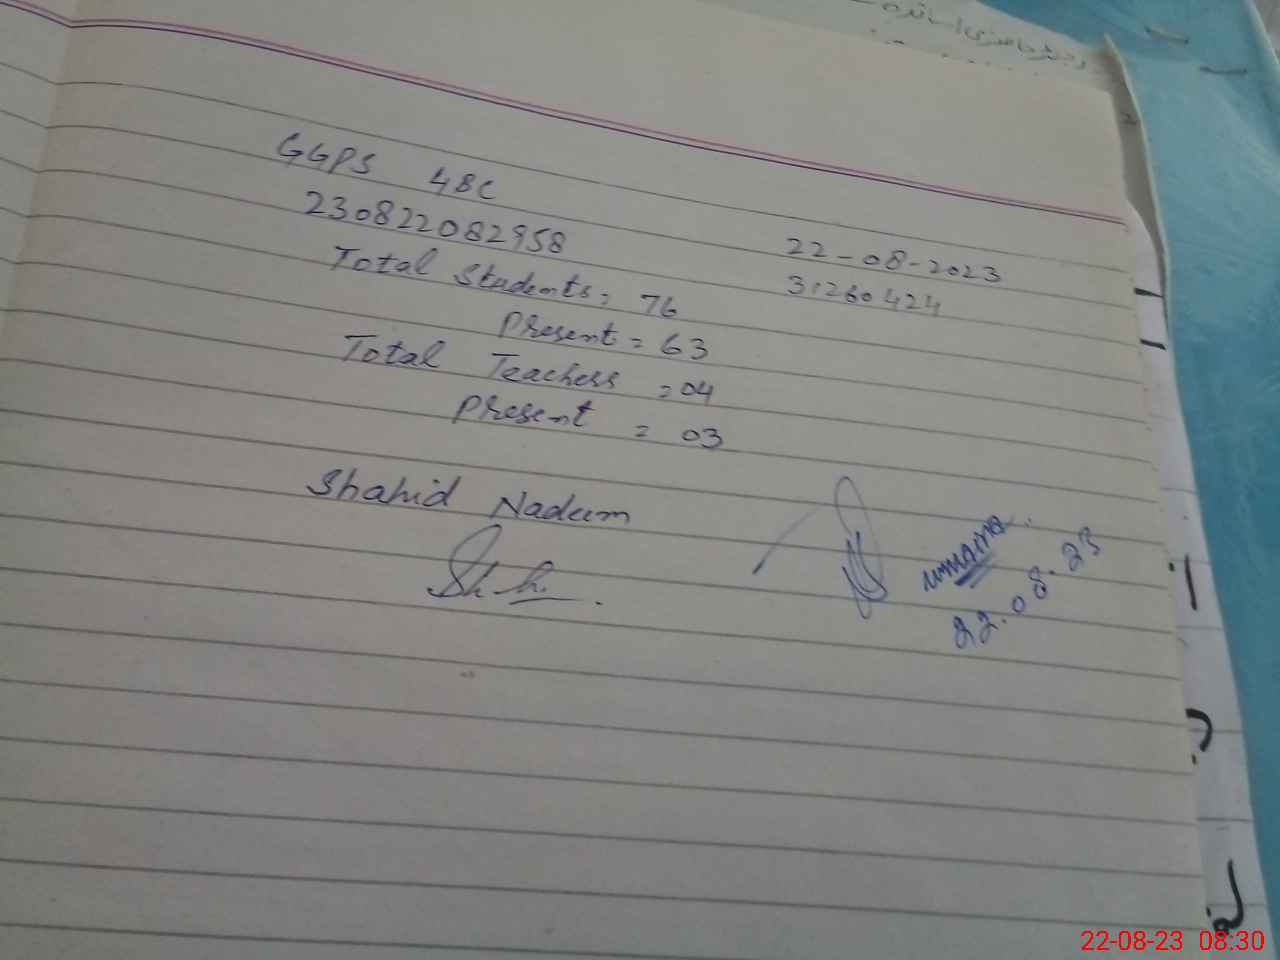 رجسٹر حاضری اساتذہ
GGPS 4BC
230822082958
22-08-2023
31260424
Total Students = 76
Present = 63
Total Teachers = 04
Present = 03
Shahid Nadeem
22.08.23
22-08-23 08:30